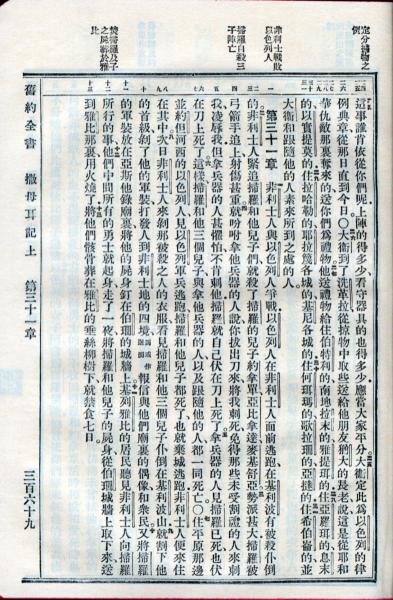 定分掳物之例
非利士戰敗以色列人
掃羅自殺三子陣亡
焚掃羅及子之屍葬於雅比
這事誰肯依從你們呢上陣的得多少看守器具的也得多少應當大家平分大衛定此爲以色列的律
例典章從那日直到今日〇大衛到了洗革拉從掠物中取些送給他朋友猶大的長老說這是從耶和
華仇敵那裏奪來的送你們爲禮物他送禮物給住伯特利的南拉末的雅提珥的亞羅珥的息末
的以實提莫的住拉哈勒的耶拉篾各城的基尼各城的住何珥瑪的歌拉珊的亞撻的住希伯崙的並
大衛和跟隨他的人素來所到之處的人
第三十一章 非利士人與以色列人爭戰以色列人在非利士人面前逃跑在基利波有被殺仆倒
的非利士人緊追掃羅和他兒子們就殺了掃羅的兒子約拿單亞比拿達麥基舒亞勢派甚大掃羅被
弓箭手追上射傷甚重就吩咐拿他兵器的人說你拔出刀來將我刺死免得那些未受割禮的人來刺
我凌辱我但拿兵器的人甚懼怕不肯刺他掃羅就自己伏在刀上死了拿兵器的人見掃羅已死也伏
在刀上死了這樣掃羅和他三個兒子與拿他兵器的人以及跟隨他的人都一同死亡〇住平原那邊
並約但河西的以色列人見以色列軍兵逃跑掃羅和他兒子都死了也就棄城逃跑非利士人便來住
在其中次日非利士人來剝那被殺之人的衣服看見掃羅和他三個兒子仆倒在基利波山就割下他
的首級剝了他的軍裝打發人到非利士地的四境報信與他們廟裏的偶像和衆民又將掃羅
的軍裝放在亞斯他錄廟裏將他的屍身釘在伯珊的城牆上基列雅比的居民聽見非利士人向掃羅
所行的事他們中間所有的勇士就起身走了一夜將掃羅和他兒子的屍身從伯珊城牆上取下來送
到雅比那裏用火燒了將他們骸骨葬在雅比的垂絲柳樹下就禁食七日
舊約全書 撒母耳記上 第三十一章 三百六十九